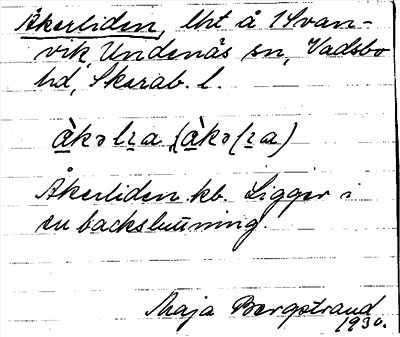 Åkerliden, lht å 1 Svan-
vik, Undenäs sn, Vadsbo
hd, Skarab. l.
àkəlɪa (àkəlɪa)
Åkerliden kb. Ligger i
en backsluttning.
Maja Bergstrand
1930.